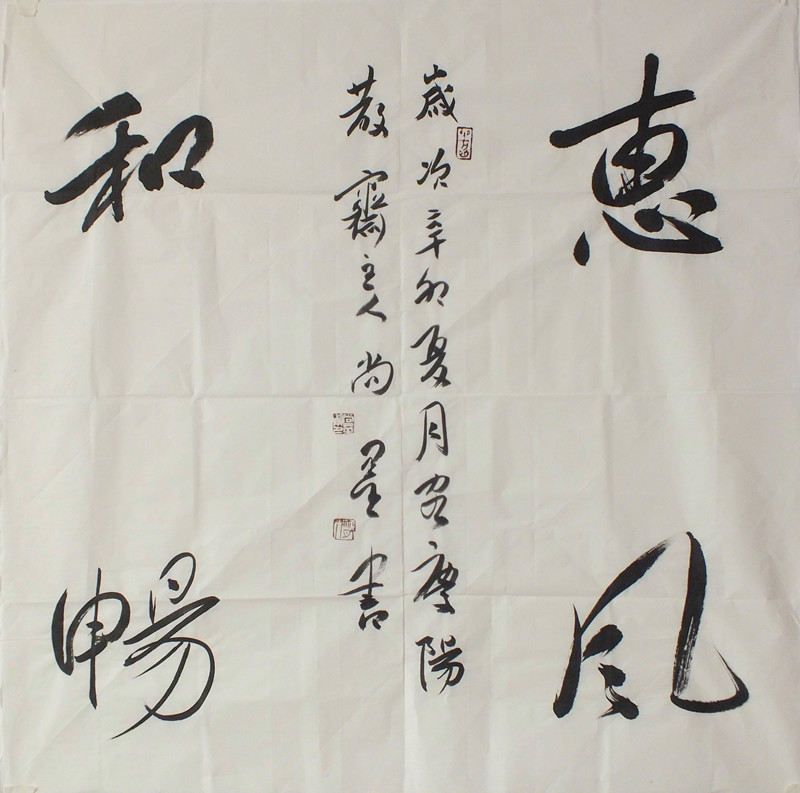 惠風
歲次辛卯夏月客慶陽
散齋主人尚墨書
和暢